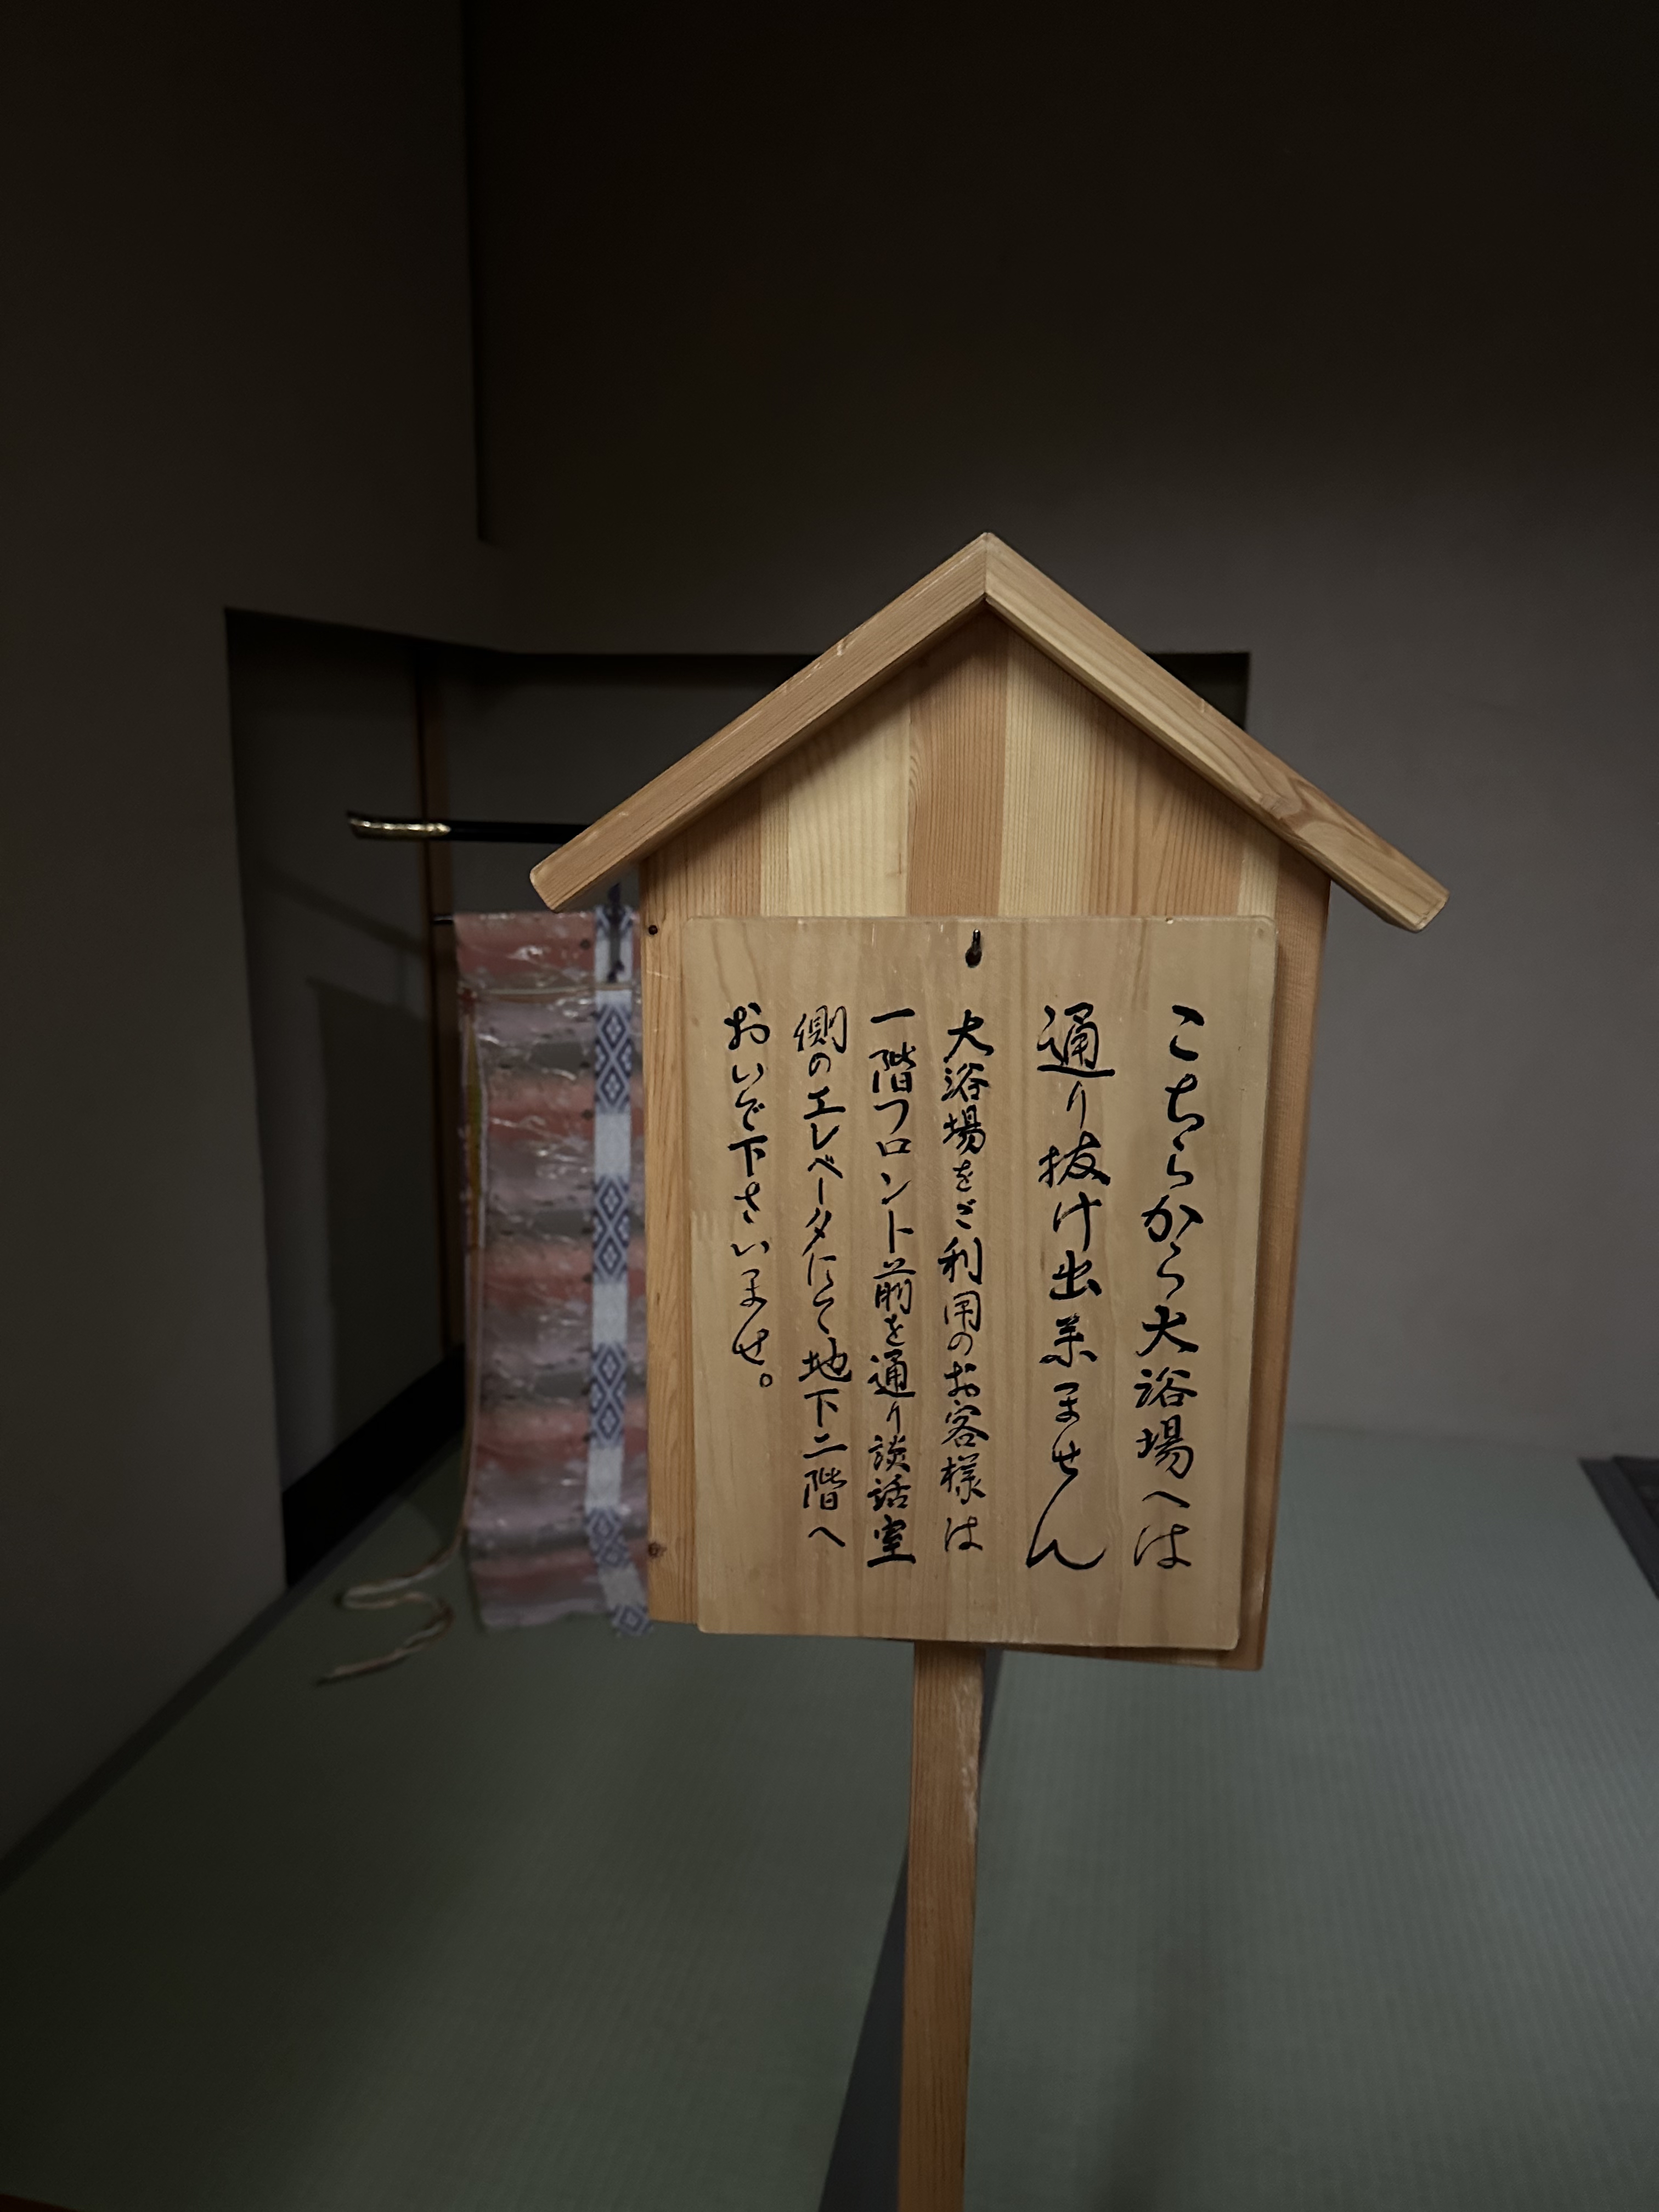 こちらから大浴場へは
通り抜け出来ません
大浴場をご利用のお客様は
一階フロント前を通り談話室
側のエレベータにて地下二階へ
おいで下さいませ。